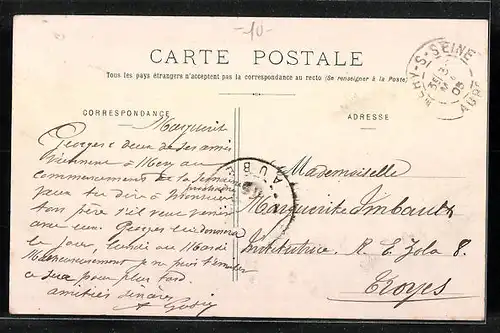 -10-
CARTE POSTALE
Tous les pays étrangers n'acceptent pas la correspondance au recto (Se renseigner à la Poste)
MERY-S-SEINE
AUBE
CORRESPONDANCE
ADRESSE
Marguerite
Georges et deux de ses amis
viennent à Mery au
commencement de la semaine
prochaine
peux tu dire à Monsieur
ton père s'il veut venir
avec eux. Georges lui donnera
le jour, lundi ou Mardi
Malheureusement je ne puis t'inviter
ce sera pour plus tard.
amitiés sincères
AUBE
Mademoiselle
Marguerite Imbault
Institutrice. R. E. Zola 8.
Troyes